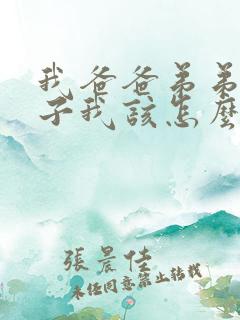 我爸爸弟弟
子我該怎麼
張晨佳
未經同意禁止轉載